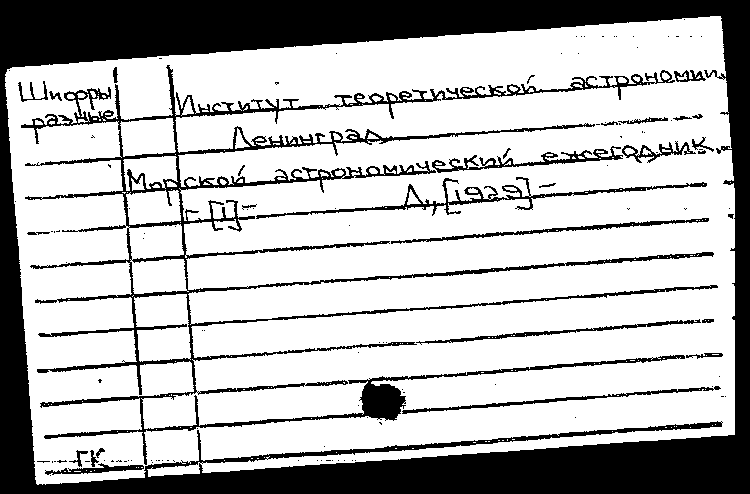 Шифры
разные
Институт теоретической астрономии.
Ленинград
Морской астрономический ежегодник.
- [1] - Л., [1929] -
ГК